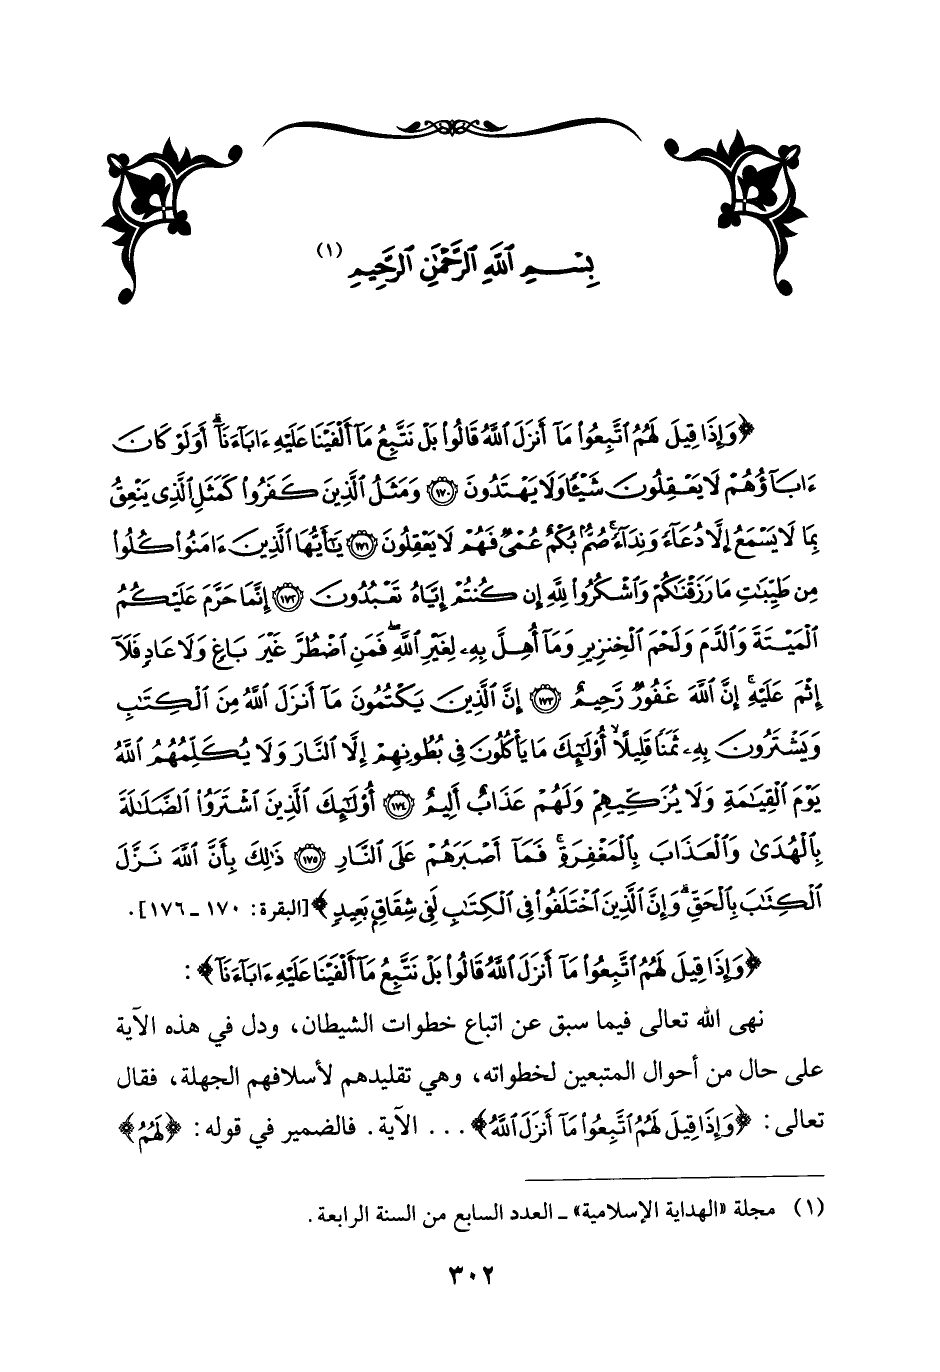 بِسْمِ ٱللَّهِ ٱلرَّحْمَٰنِ ٱلرَّحِيمِ (١)
﴿وَإِذَا قِيلَ لَهُمُ ٱتَّبِعُوا۟ مَآ أَنزَلَ ٱللَّهُ قَالُوا۟ بَلْ نَتَّبِعُ مَآ أَلْفَيْنَا عَلَيْهِ ءَابَآءَنَآ ۗ أَوَلَوْ كَانَ
ءَابَآؤُهُمْ لَا يَعْقِلُونَ شَيْـًٔا وَلَا يَهْتَدُونَ ﴿١٧٠﴾ وَمَثَلُ ٱلَّذِينَ كَفَرُوا۟ كَمَثَلِ ٱلَّذِى يَنْعِقُ
بِمَا لَا يَسْمَعُ إِلَّا دُعَآءً وَنِدَآءً ۚ صُمٌّۢ بُكْمٌ عُمْىٌ فَهُمْ لَا يَعْقِلُونَ ﴿١٧١﴾ يَٰٓأَيُّهَا ٱلَّذِينَ ءَامَنُوا۟ كُلُوا۟
مِن طَيِّبَٰتِ مَا رَزَقْنَٰكُمْ وَٱشْكُرُوا۟ لِلَّهِ إِن كُنتُمْ إِيَّاهُ تَعْبُدُونَ ﴿١٧٢﴾ إِنَّمَا حَرَّمَ عَلَيْكُمُ
ٱلْمَيْتَةَ وَٱلدَّمَ وَلَحْمَ ٱلْخِنزِيرِ وَمَآ أُهِلَّ بِهِۦ لِغَيْرِ ٱللَّهِ ۖ فَمَنِ ٱضْطُرَّ غَيْرَ بَاغٍ وَلَا عَادٍ فَلَآ
إِثْمَ عَلَيْهِ ۚ إِنَّ ٱللَّهَ غَفُورٌ رَّحِيمٌ ﴿١٧٣﴾ إِنَّ ٱلَّذِينَ يَكْتُمُونَ مَآ أَنزَلَ ٱللَّهُ مِنَ ٱلْكِتَٰبِ
وَيَشْتَرُونَ بِهِۦ ثَمَنًا قَلِيلًا ۙ أُو۟لَٰٓئِكَ مَا يَأْكُلُونَ فِى بُطُونِهِمْ إِلَّا ٱلنَّارَ وَلَا يُكَلِّمُهُمُ ٱللَّهُ
يَوْمَ ٱلْقِيَٰمَةِ وَلَا يُزَكِّيهِمْ وَلَهُمْ عَذَابٌ أَلِيمٌ ﴿١٧٤﴾ أُو۟لَٰٓئِكَ ٱلَّذِينَ ٱشْتَرَوُا۟ ٱلضَّلَٰلَةَ
بِٱلْهُدَىٰ وَٱلْعَذَابَ بِٱلْمَغْفِرَةِ ۚ فَمَآ أَصْبَرَهُمْ عَلَى ٱلنَّارِ ﴿١٧٥﴾ ذَٰلِكَ بِأَنَّ ٱللَّهَ نَزَّلَ
ٱلْكِتَٰبَ بِٱلْحَقِّ ۗ وَإِنَّ ٱلَّذِينَ ٱخْتَلَفُوا۟ فِى ٱلْكِتَٰبِ لَفِى شِقَاقٍۭ بَعِيدٍ﴾ [البقرة: ١٧٠ ـ ١٧٦].
﴿وَإِذَا قِيلَ لَهُمُ ٱتَّبِعُوا۟ مَآ أَنزَلَ ٱللَّهُ قَالُوا۟ بَلْ نَتَّبِعُ مَآ أَلْفَيْنَا عَلَيْهِ ءَابَآءَنَآ﴾:
نهى الله تعالى فيما سبق عن اتباع خطوات الشيطان، ودل في هذه الآية
على حال من أحوال المتبعين لخطواته، وهي تقليدهم لأسلافهم الجهلة، فقال
تعالى: ﴿وَإِذَا قِيلَ لَهُمُ ٱتَّبِعُوا۟ مَآ أَنزَلَ ٱللَّهُ﴾ ... الآية. فالضمير في قوله: ﴿لَهُمُ﴾
(١) مجلة «الهداية الإسلامية» ـ العدد السابع من السنة الرابعة.
٣٠٢